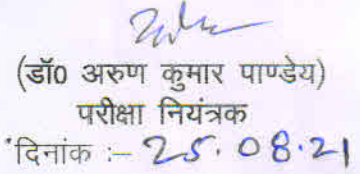 (डॉ0 अरुण कुमार पाण्डेय)
परीक्षा नियंत्रक
दिनांक :– 25.08.21